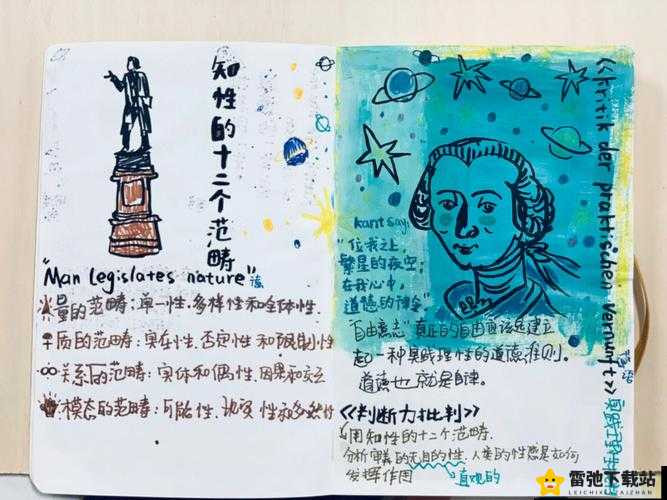 知性的十二个范畴
"Man legislates nature"
量的范畴：单一性、多样性和全体性.
质的范畴：实在性、否定性和限制性
关系的范畴：实体和偶性，因果和交互
模态的范畴：可能性、现实性和必然性
kant say:
"位我之上,
繁星的夜空;
在我心中,
道德的神令"
《Kritik der praktischen Vernunft》
"自由意志" 真正的自由应该是建立
起一种实践理性的道德准则。
道德也就是自律。
《判断力批判》
用知性的十二个范畴.
分析审美的无目的性,人类的性感是如何
发挥作用
直观的
雷弛下载站
LEICHIXIAZAIZHAN